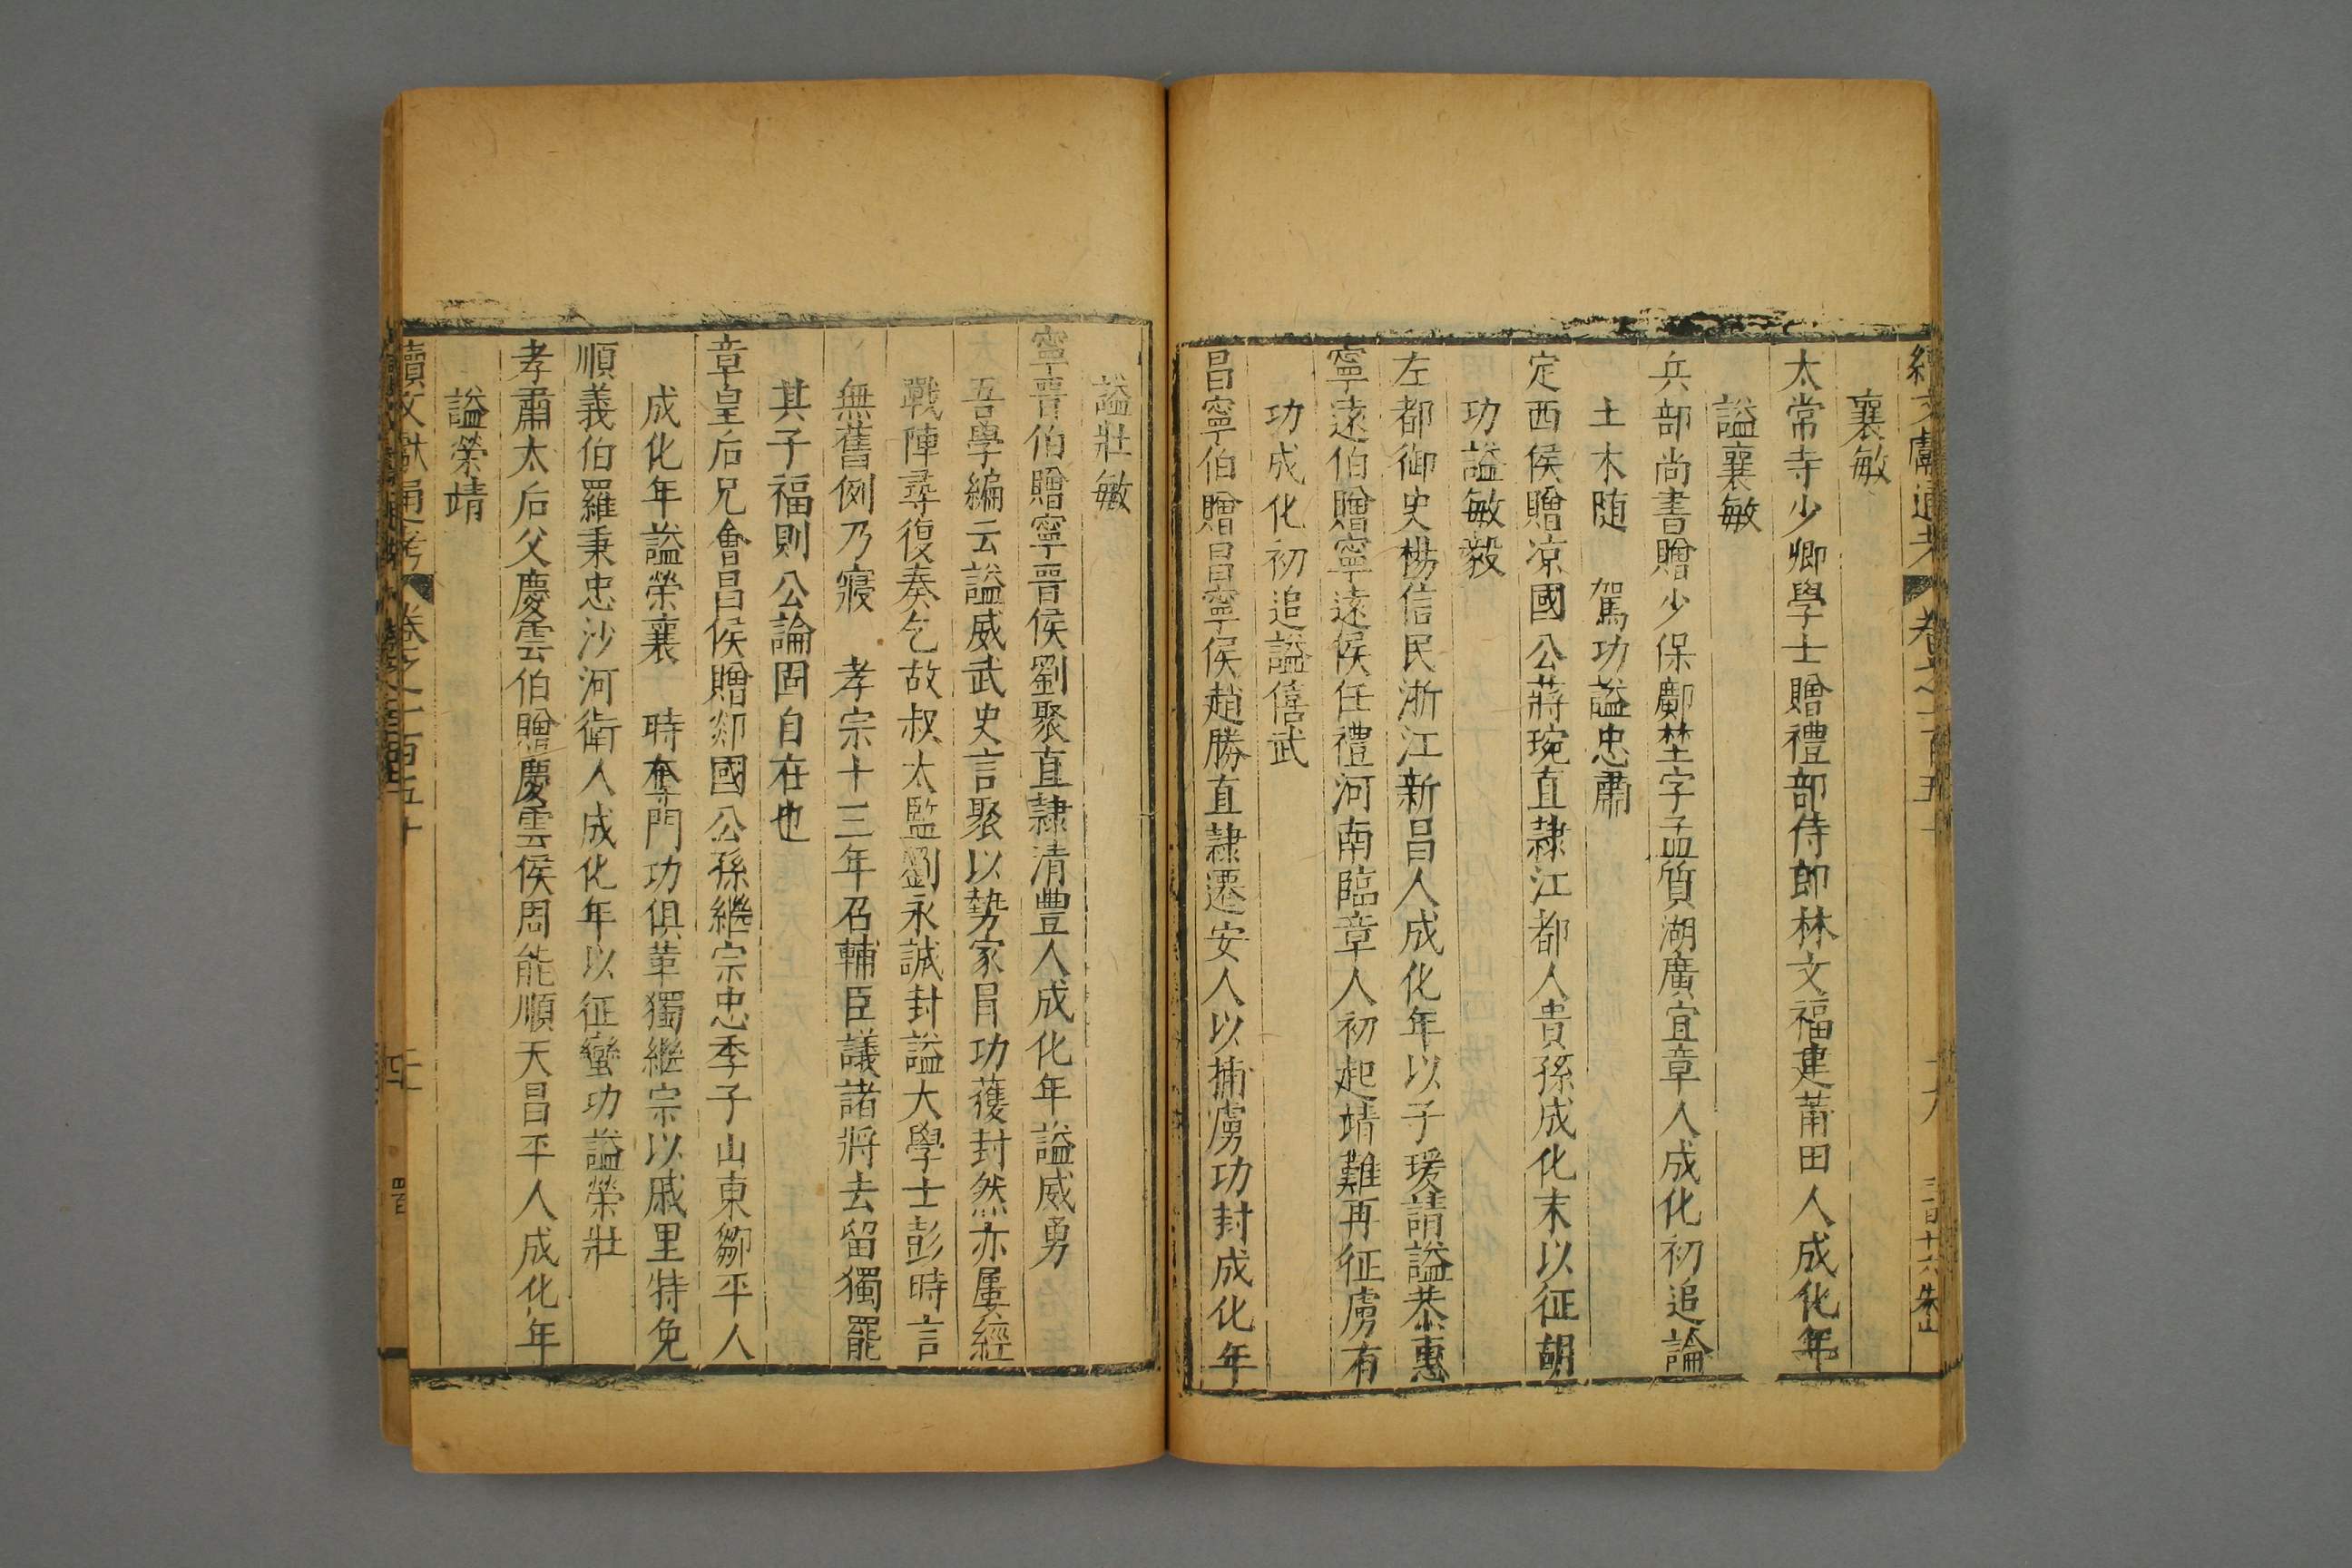 續文獻通考 卷之一百五十
襄敏
太常寺少卿學士贈禮部侍郎林文福建莆田人成化年
諡襄敏
兵部尚書贈少保鄺埜字孟質湖廣宜章人成化初追論
土木随 駕功諡忠肅
定西侯贈凉國公蔣琬直隷江都人貴孫成化末以征朝
功諡敏毅
左都御史楊信民浙江新昌人成化年以子瑗請諡恭惠
寧遠伯贈寧遠侯任禮河南臨章人初起靖難再征虜有
功成化初追諡僖武
昌寧伯贈昌寧侯趙勝直隷遷安人以捕虜功封成化年
諡壯敏
寧晋伯贈寧晋侯劉聚直隷清豐人成化年諡威勇
吾學編云諡威武史言聚以勢家冐功獲封然亦屢經
戰陣尋復奏乞故叔太監劉永誠封諡大學士彭時言
無舊例乃寢 孝宗十三年召輔臣議諸將去留獨罷
其子福則公論固自在也
章皇后兄會昌侯贈郯國公孫繼宗忠季子山東鄒平人
成化年諡榮襄 時奪門功俱革獨繼宗以戚里特免
順義伯羅秉忠沙河衛人成化年以征蠻功諡榮壯
孝肅太后父慶雲伯贈慶雲侯周能順天昌平人成化年
諡榮靖
續文獻通考 卷之一百五十